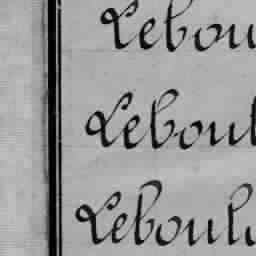 Lebou
Leboul
Leboulu